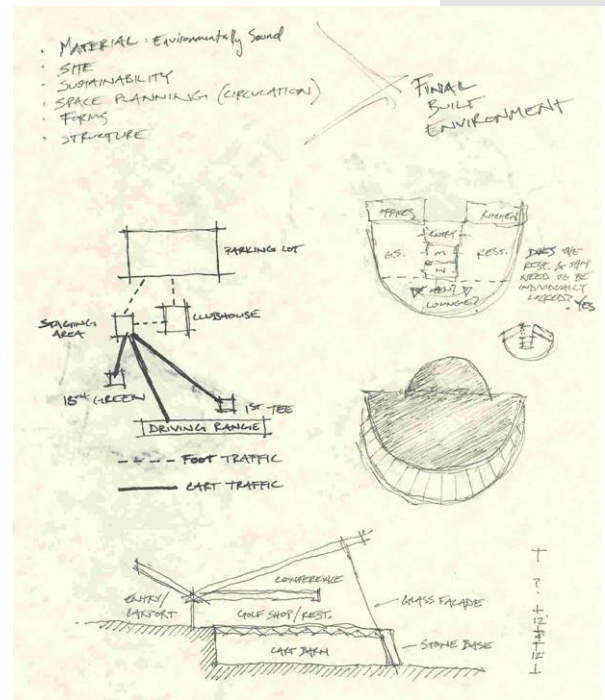 · MATERIAL: Environmentally Sound
· SITE
· SUSTAINABILITY
· SPACE PLANNING (CIRCULATION)
· FORMS
· STRUCTURE
FINAL
BUILT
ENVIRONMENT
PARKING LOT
STAGING
AREA
CLUBHOUSE
18TH GREEN
1ST TEE
DRIVING RANGE
FOOT TRAFFIC
CART TRAFFIC
OFFICES
KITCHEN
ENTRY
G.S.
M
REST.
OPEN?
LOUNGE?
DOES THE
REST. & SHOP
NEED TO BE
INDIVIDUALLY
LOCKED?
· YES
ENTRY/
CARPORT
CONFERENCE
GOLF SHOP/REST.
CART BARN
GLASS FACADE
STONE BASE
?
12'
12'